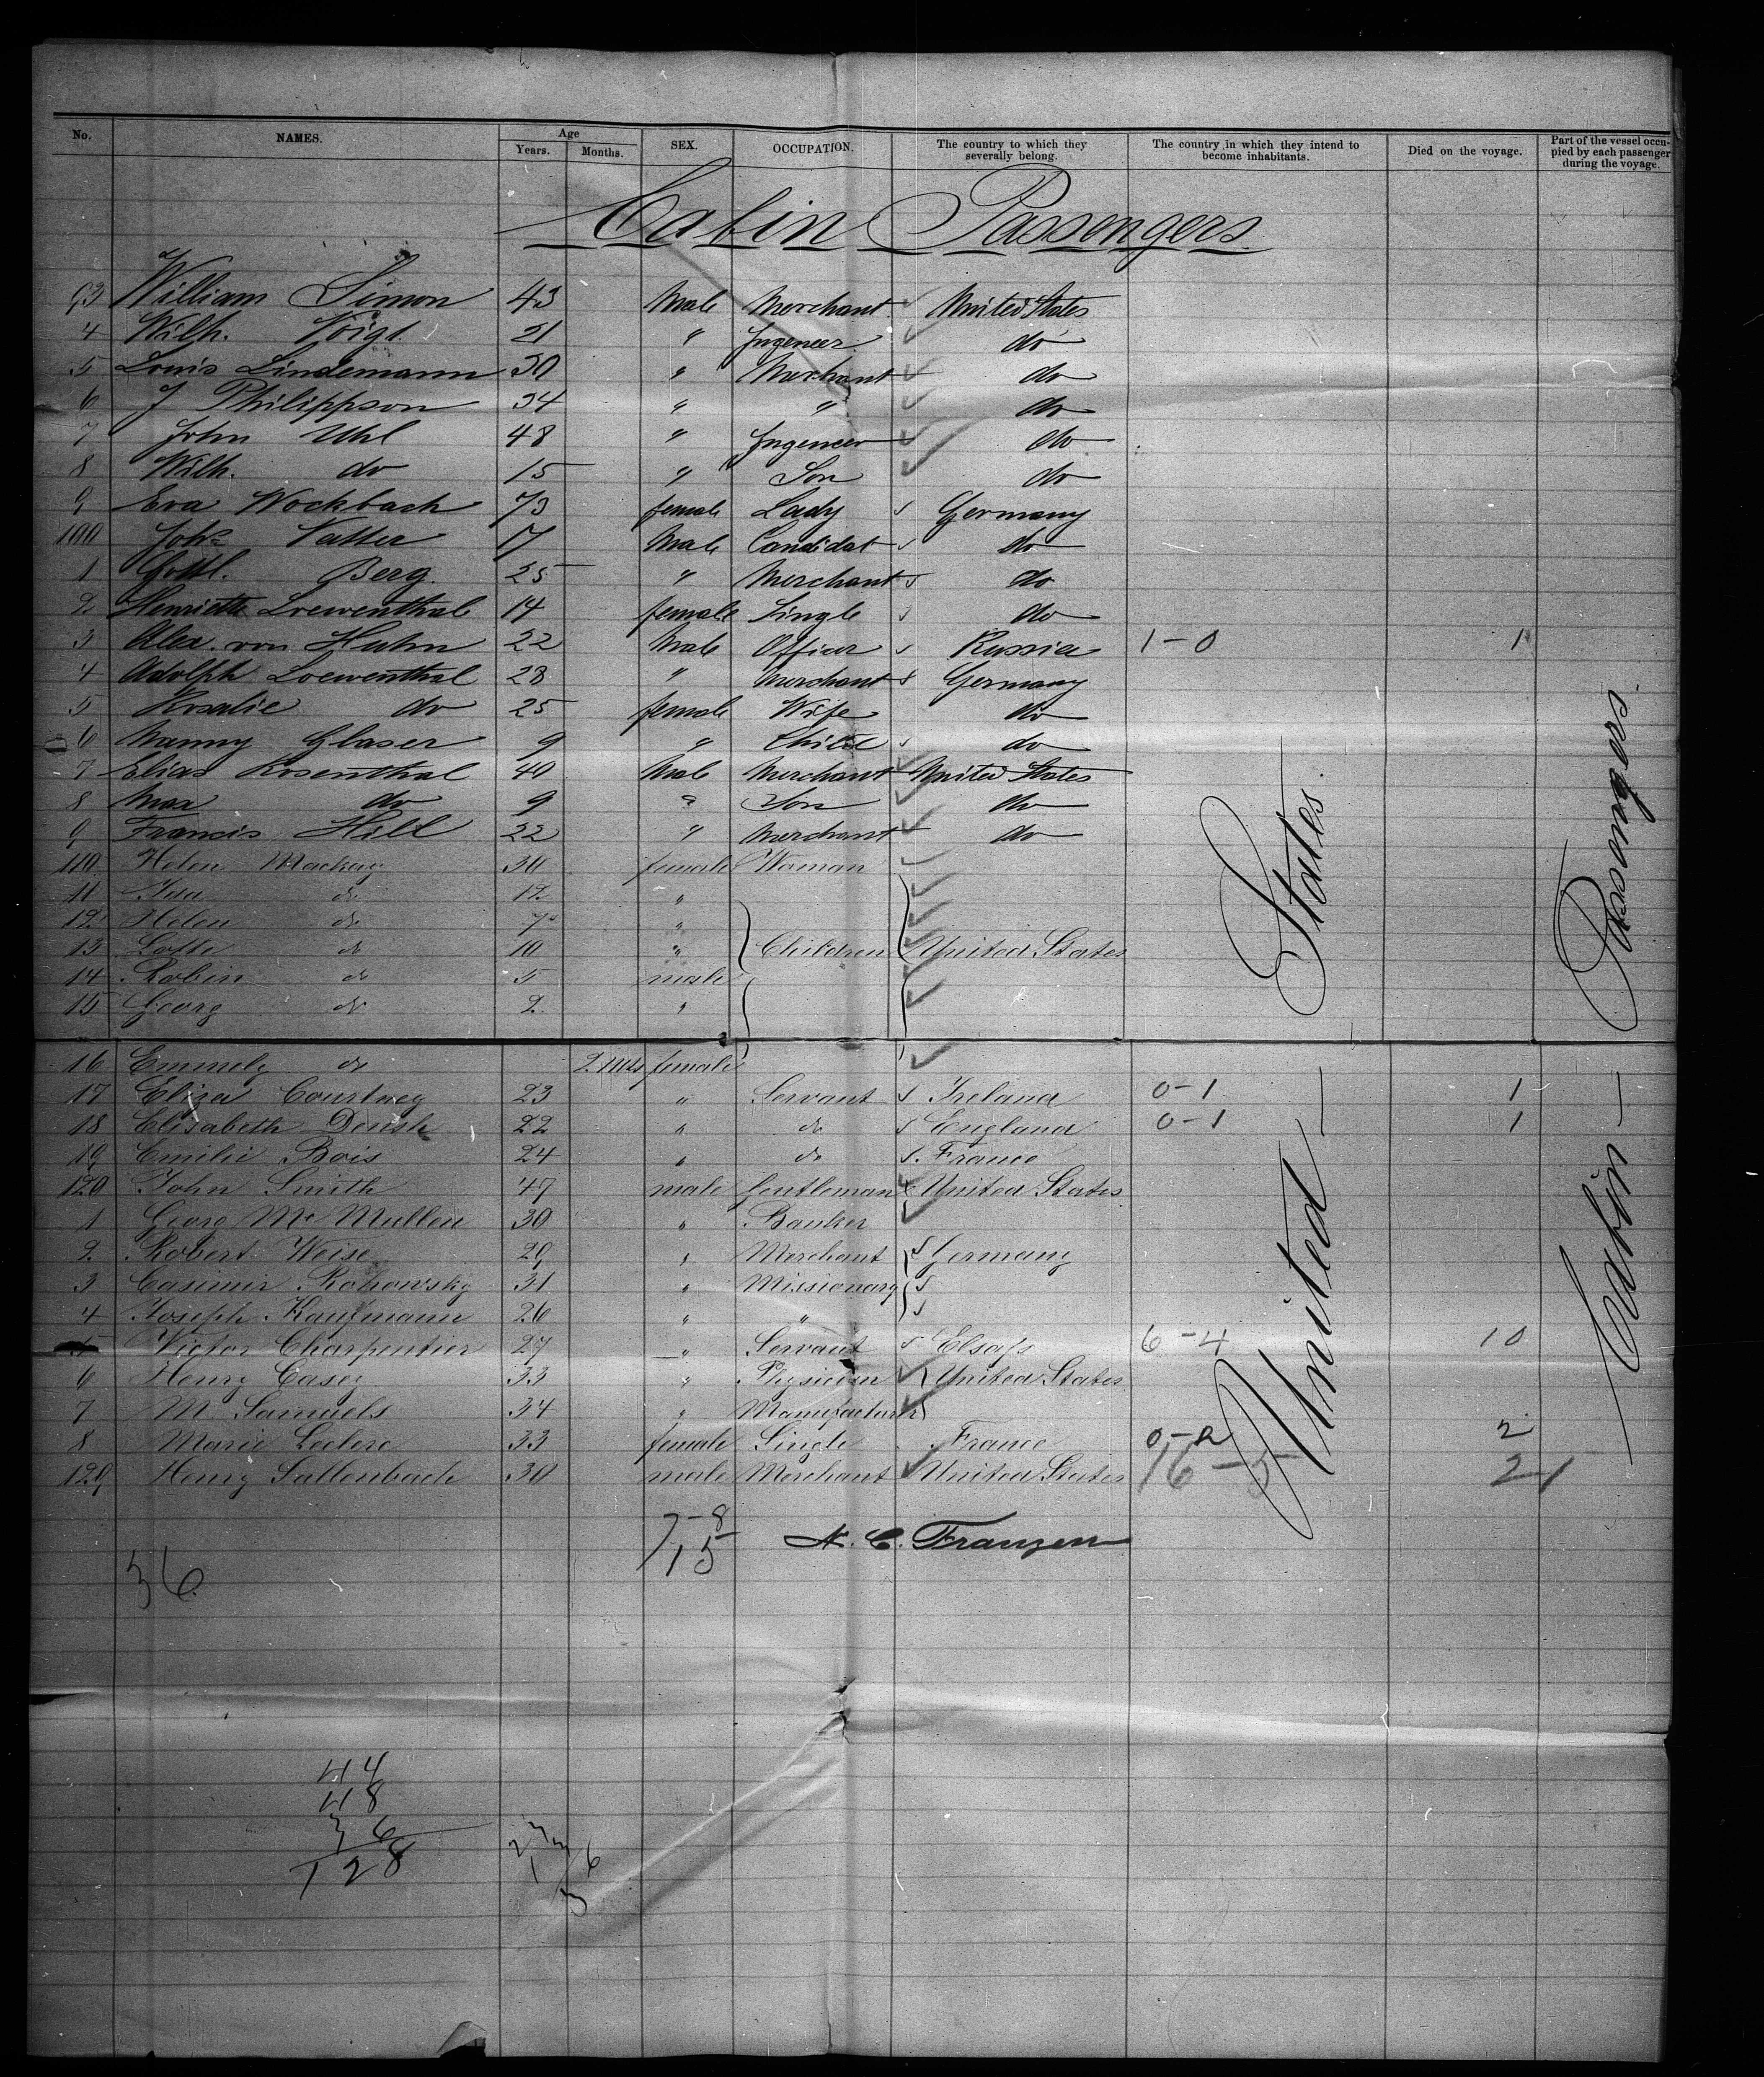 No. NAMES. Age Years. Months. SEX. OCCUPATION. The country to which they severally belong. The country in which they intend to become inhabitants. Died on the voyage. Part of the vessel occupied by each passenger during the voyage.
Cabin Passengers
93 William Simon 43 Male Merchant United States
4 Wilh. Voigt 21 " Ingeneer do
5 Louis Lindemann 30 " Merchant do
6 J Philippson 34 " " do
7 John Uhl 48 " Ingeneer do
8 Wilh. do 15 " Son do
9 Eva Wockbach 73 female Lady Germany
100 Johs Vatter 17 Male Candidat do
1 Gottl. Berg 25 " Merchant do
2 Henriette Loewenthal 14 female Single do
3 Alex. von Huhn 22 Male Officer Russia 1-0 1
4 Adolph Loewenthal 28 " Merchant Germany
5 Rosalie do 25 female Wife do
6 Nanny Glaser 9 " Child do
7 Elias Rosenthal 40 Male Merchant United States
8 Max do 9 " Son do
9 Francis Hill 22 " Merchant do
110 Helen Mackay 30 female Woman
11 Ina do 12 "
12 Helen do 7 "
13 Lotte do 10 " Children United States
14 Robin do 5 male
15 Georg do 2 "
16 Emmely do 2 Mts female
17 Eliza Courtney 23 " Servant Ireland 0-1 1
18 Elisabeth 22 " do England 0-1 1
19 Emilie Bois 24 " do France
120 John Smith 47 male Gentleman United States
1 Georg Mc Mullen 30 " Banker
2 Robert Weise 29 " Merchant Germany
3 Casimir Rohowsky 31 " Missionary
4 Joseph Kaufmann 26 " "
5 Victor Charpentier 27 " Servant Elsaſs 6-4 10
6 Henry Casey 33 " Physician United States
7 M Samuels 34 " Manufacturer
8 Marie Leclerc 33 female Single France 0-2 2
129 Henry Sallenbach 30 male Merchant United States 16-5 21
United States
Cabin Passengers
7-8
15
N. C. Franzen
36
44
48
36
128